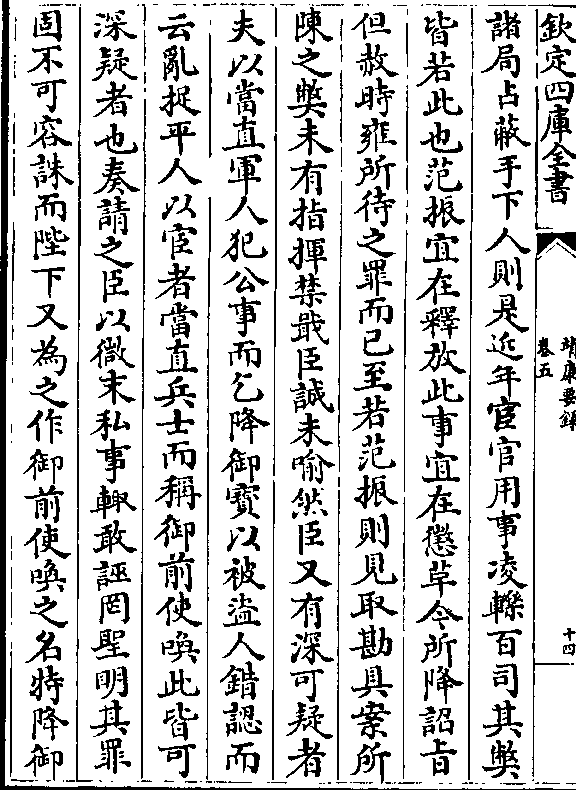 欽定四庫全書
靖康要錄
卷五
十四
諸局占蔽手下人則是近年宦官用事凌轢百司其弊
皆若此也范振宜在釋放此事宜在懲革今所降詔旨
但赦時雍所待之罪而已至若范振則見取勘具案所
陳之弊未有指揮禁戢臣誠未喻然臣又有深可疑者
夫以當直軍人犯公事而乞降御寳以被盜人錯認而
云亂捉平人以宦者當直兵士而稱御前使喚此皆可
深疑者也奏請之臣以微末私事輙敢誣罔聖明其罪
固不可容誅而陛下又為之作御前使喚之名特降御